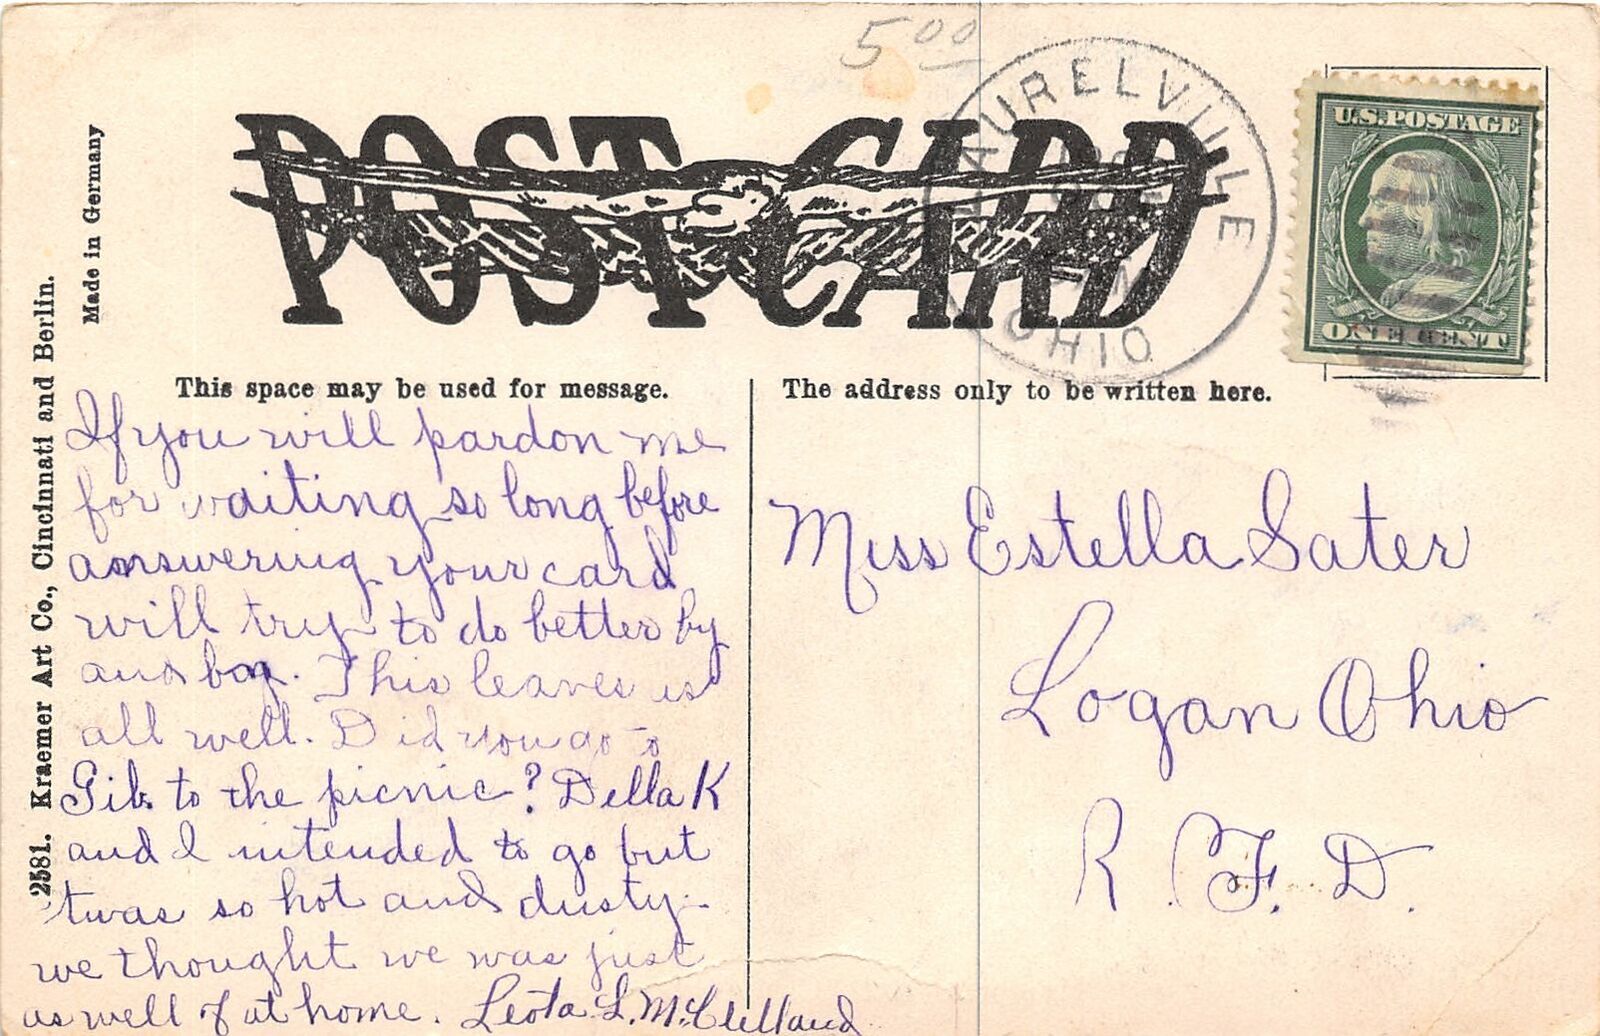 5 00
POST CARD
LAURELVILLE
OHIO
U.S. POSTAGE
ONE CENT
Made in Germany
2581. Kraemer Art Co., Cincinnati and Berlin.
This space may be used for message.
The address only to be written here.
If you will pardon me
for waiting so long before
answering your card
will try to do better by
and bay. This leaves us
all well. Did you go to
Gib. to the picnic? Della K
and I intended to go but
twas so hot and dusty
we thought we was just
as well of at home. Leota L. McClelland
Miss Estella Sater
Logan Ohio
R. F. D.